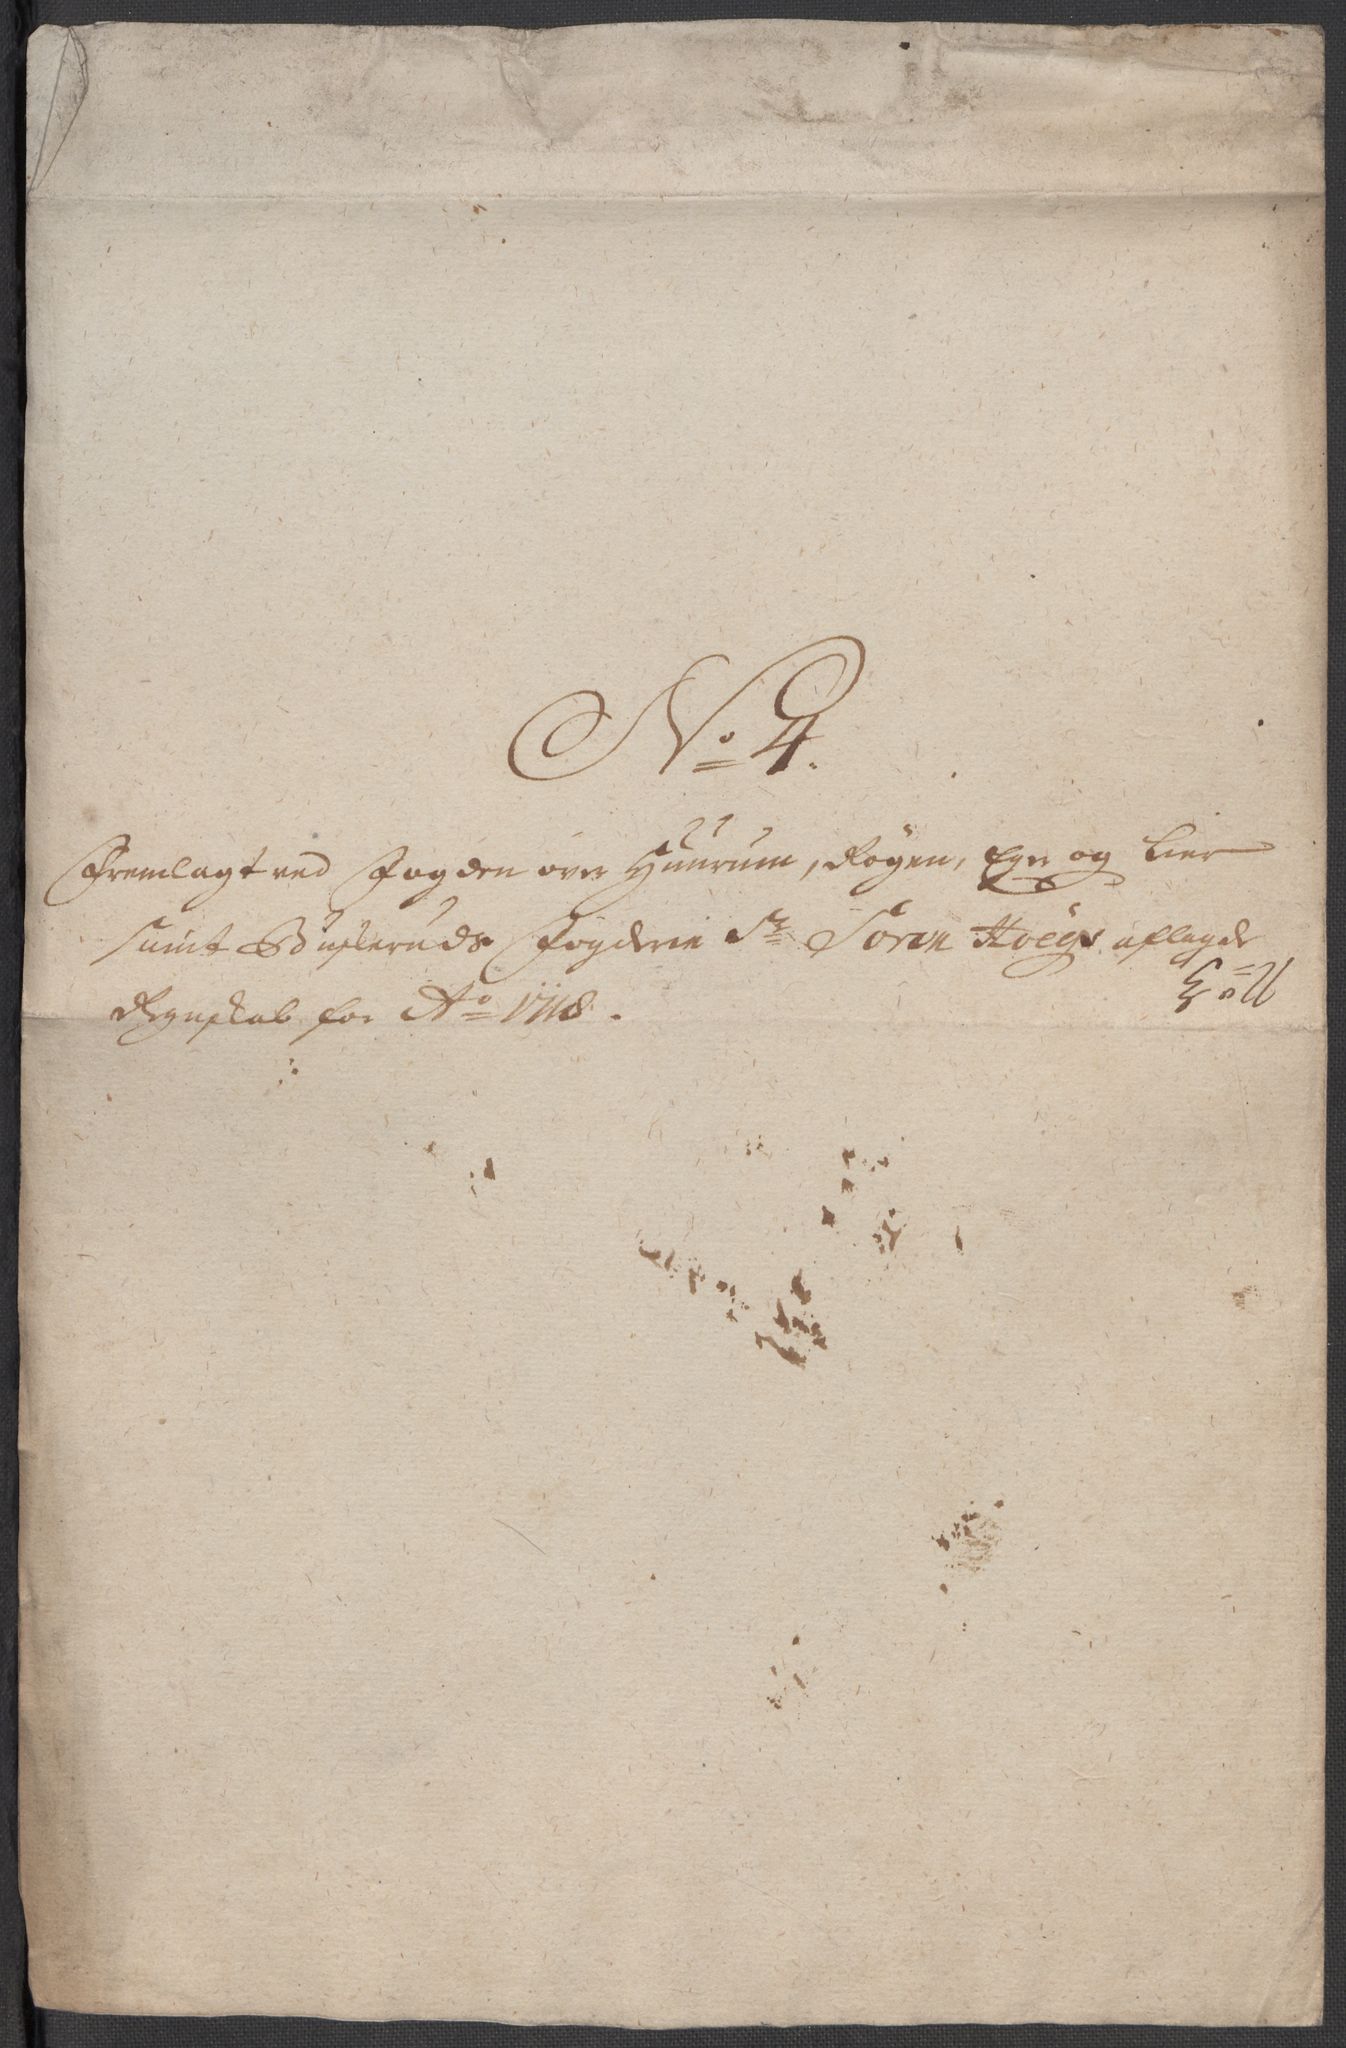 No 4.
Fremlagt ved Fogden over Huurum, Røgen, Eger og Lier
samt Buskeruds Fogderie Sr Søren Høegs aflagde
Regnskab for Ao 1718.